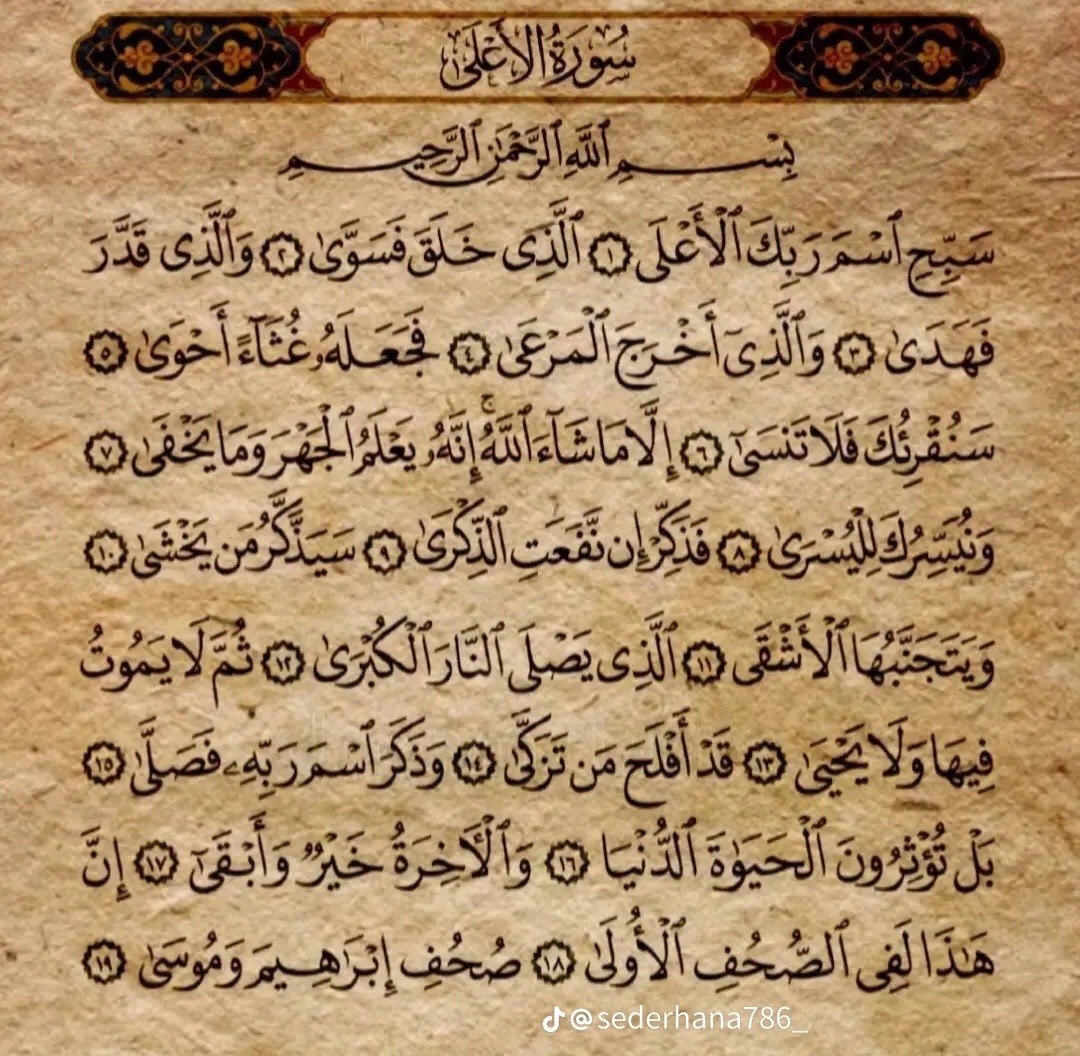 سُورَةُ الأَعْلَىٰ
بِسْمِ ٱللَّهِ ٱلرَّحْمَٰنِ ٱلرَّحِيمِ
سَبِّحِ ٱسْمَ رَبِّكَ ٱلْأَعْلَى ١ ٱلَّذِى خَلَقَ فَسَوَّىٰ ٢ وَٱلَّذِى قَدَّرَ
فَهَدَىٰ ٣ وَٱلَّذِىٓ أَخْرَجَ ٱلْمَرْعَىٰ ٤ فَجَعَلَهُۥ غُثَآءً أَحْوَىٰ ٥
سَنُقْرِئُكَ فَلَا تَنسَىٰٓ ٦ إِلَّا مَا شَآءَ ٱللَّهُ ۚ إِنَّهُۥ يَعْلَمُ ٱلْجَهْرَ وَمَا يَخْفَىٰ ٧
وَنُيَسِّرُكَ لِلْيُسْرَىٰ ٨ فَذَكِّرْ إِن نَّفَعَتِ ٱلذِّكْرَىٰ ٩ سَيَذَّكَّرُ مَن يَخْشَىٰ ١٠
وَيَتَجَنَّبُهَا ٱلْأَشْقَى ١١ ٱلَّذِى يَصْلَى ٱلنَّارَ ٱلْكُبْرَىٰ ١٢ ثُمَّ لَا يَمُوتُ
فِيهَا وَلَا يَحْيَىٰ ١٣ قَدْ أَفْلَحَ مَن تَزَكَّىٰ ١٤ وَذَكَرَ ٱسْمَ رَبِّهِۦ فَصَلَّىٰ ١٥
بَلْ تُؤْثِرُونَ ٱلْحَيَوٰةَ ٱلدُّنْيَا ١٦ وَٱلْءَاخِرَةُ خَيْرٌ وَأَبْقَىٰٓ ١٧ إِنَّ
هَٰذَا لَفِى ٱلصُّحُفِ ٱلْأُولَىٰ ١٨ صُحُفِ إِبْرَٰهِيمَ وَمُوسَىٰ ١٩
@sederhana786_